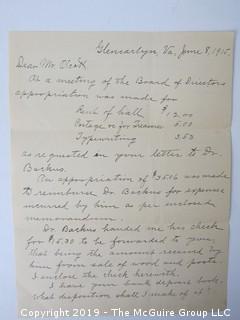 Glencarlyn, Va, June 8, 1915.
Dear Mr.
At a meeting of the Board of Directors
appropriation was made for
Rent of hall $12.00
Postage &c for Treasurer 5.00
Typewriting 3.50
as requested in your letter to Dr.
Backus.
An appropriation of $35.06 was made
to reimburse Dr. Backus for expense
incurred by him as per enclosed
memorandum.
Dr. Backus handed me his check
for $15.30 to be forwarded to you,
that being the amount received by
him from sale of wood and posts.
I enclose the check herewith.
I have your bank deposit book.
What disposition shall I make of it?
Copyright 2019 - The McGuire Group LLC